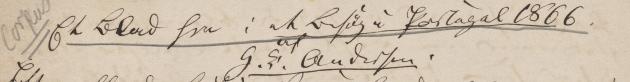 Corpus
Et Blad fra et Besøg i Portugal 1866.
af
H. C. Andersen.